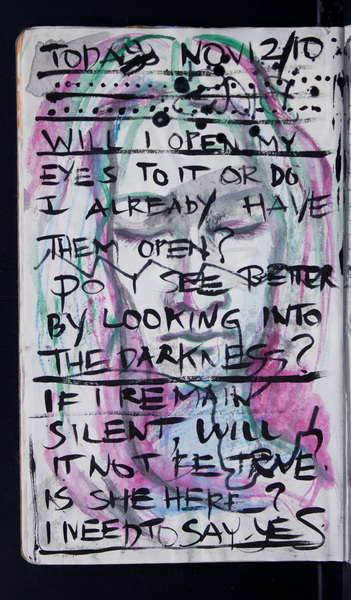 TODAY NOV 2/10
WILL I OPEN MY
EYES TO IT OR DO
I ALREADY HAVE
THEM OPEN?
DO I SEE BETTER
BY LOOKING INTO
THE DARKNESS?
IF I REMAIN
SILENT, WILL
IT NOT BE TRUE.
IS SHE HERE?
I NEED TO SAY YES